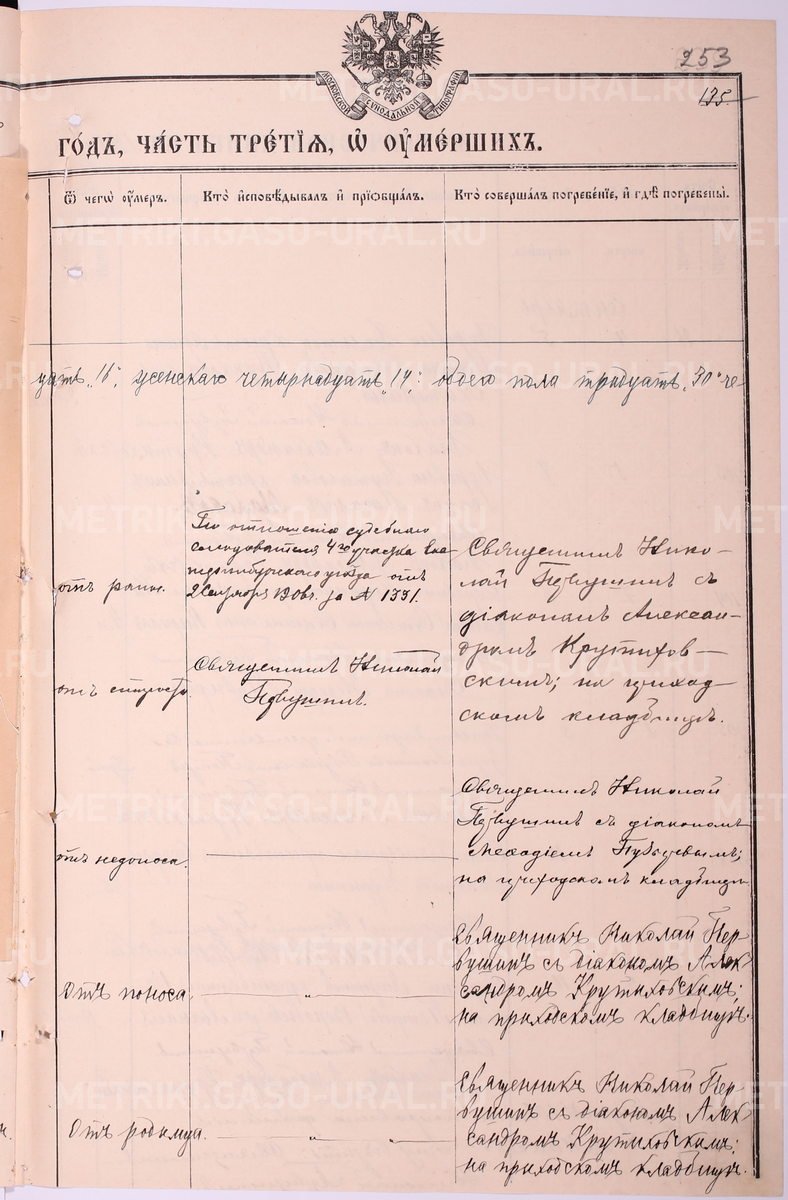 253
135
МОСКОВСКОЙ СѴНОДАЛЬНОЙ ТИПОГРАФІИ
ГОДЪ, ЧАСТЬ ТРЕТІЯ, Ѡ ОУМЕРШИХЪ.
Ѿ чегѡ оумеръ.
Кто исповѣдывалъ и пріобщалъ.
Кто совершалъ погребеніе, и гдѣ погребены.
цать "16", женскаго четырнадцать "14", обоего пола тридцать "30" че-
отъ ранъ.
По отношенію судебнаго
слѣдователя 4го участка Ека-
теринбургскаго уѣзда отъ
2 Сентября за № 1331.
Священникъ Нико-
лай Первушинъ съ
діакономъ Алексан-
дромъ Крутихов-
скимъ; на приход-
скомъ кладбищѣ.
отъ старости
Священникъ Николай
Первушинъ.
отъ недоноса.
Священникъ Николай
Первушинъ съ діакономъ
на приходскомъ кладбищѣ
Отъ поноса.
Священникъ Николай Пер-
вушинъ съ діакономъ Алек-
сандромъ Крутиховскимъ;
на приходскомъ кладбищѣ.
Отъ родимца.
Священникъ Николай Пер-
вушинъ съ діакономъ Алек-
сандромъ Крутиховскимъ;
на приходскомъ кладбищѣ.
METRIKI.GASO-URAL.RU